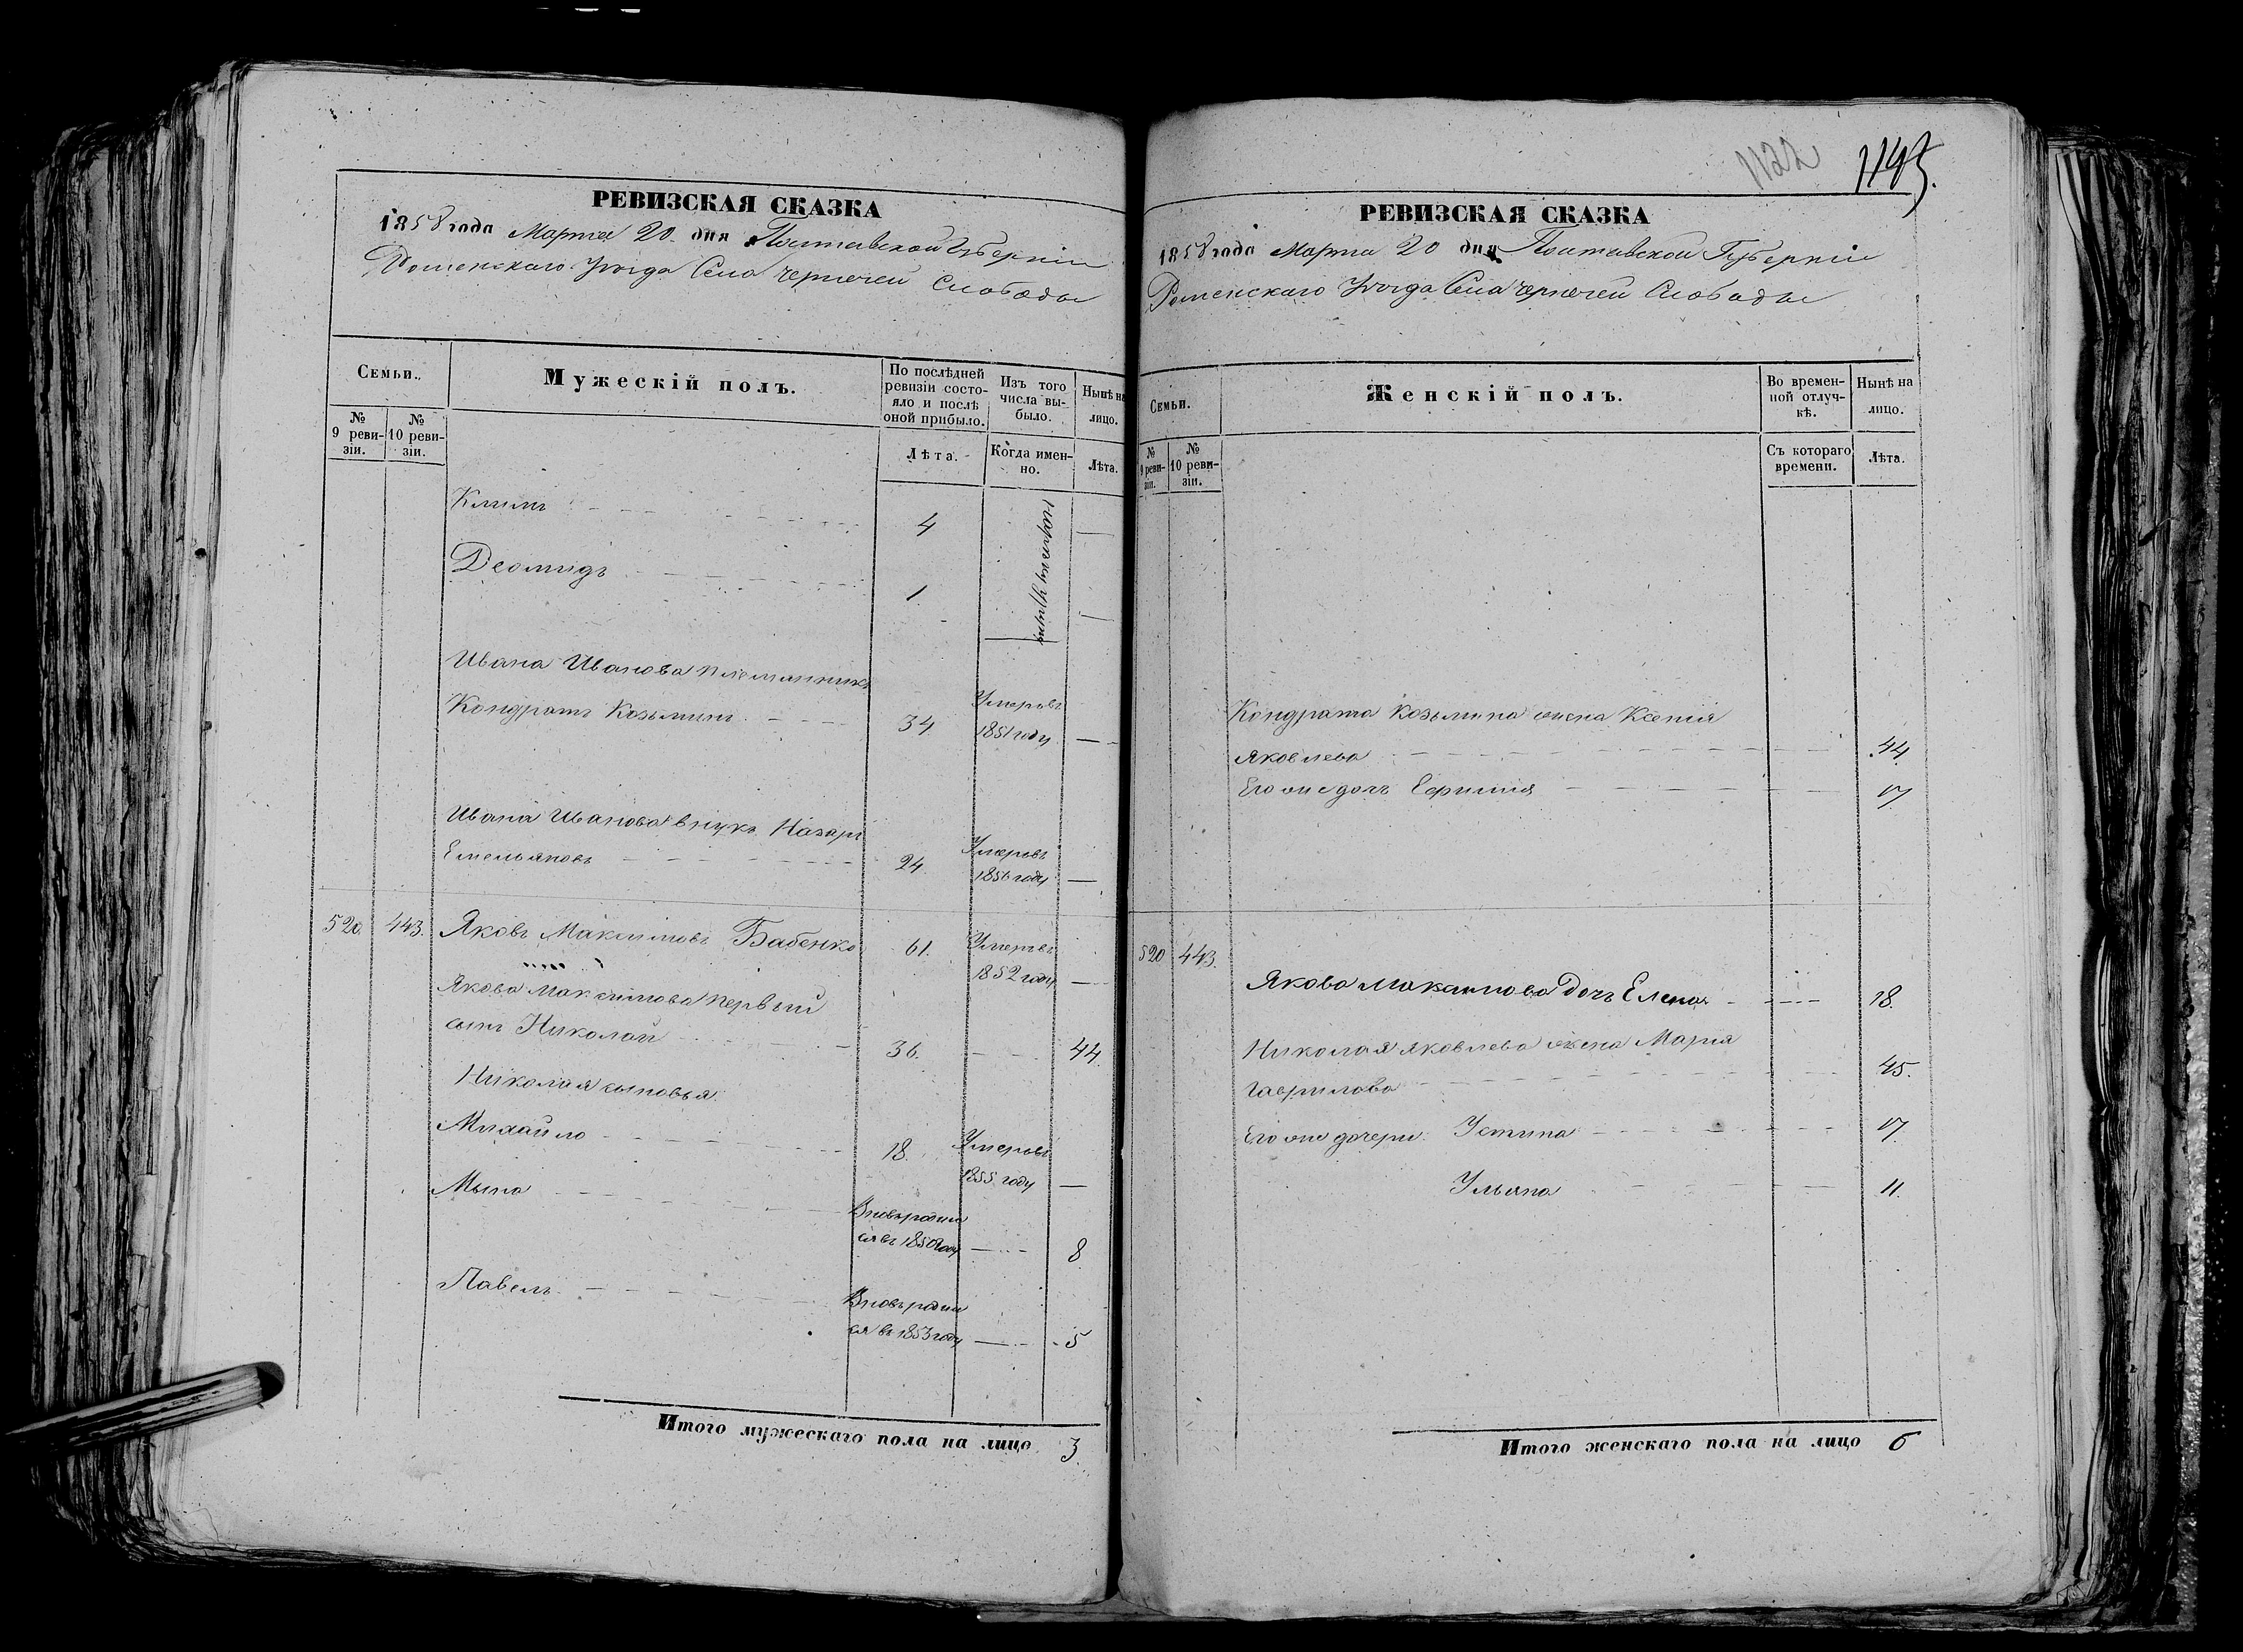 РЕВИЗСКАЯ СКАЗКА
1858 года Марта 20 дня Полтавской Губерніи
Роменскаго Уѣзда Села Чернечей Слободы
Семьи.
Мужескій полъ.
По послѣдней ревизіи состояло и послѣ оной прибыло.
Изъ того числа выбыло.
Нынѣ на лицо.
№ 9 ревизіи.
№ 10 ревизіи.
Лѣта.
Когда именно.
Лѣта.
Климъ 4 —
Деомидъ 1 —
Ивана Иванова племянникъ
Кондратъ Козьминъ 34 Умеръ въ 1851 году —
Ивана Иванова внукъ Назаръ
Емельяновъ 24 Умеръ въ 1856 году —
520. 443. Яковъ Максимовъ Бабенко 61. Умеръ въ 1852 году —
Якова Максимова первый
сынъ Николай 36. — 44.
Николая сыновья
Михайло 18. Умеръ въ 1855 году —
Мына Вновь родился въ 1850 году — 8
Павелъ Вновь родился въ 1853 году — 5
Итого мужескаго пола на лицо 3
1122 1143.
РЕВИЗСКАЯ СКАЗКА
1858 года Марта 20 дня Полтавской Губерніи
Роменскаго Уѣзда Села Чернечей Слободы
Семьи.
Женскій полъ.
Во временной отлучкѣ.
Нынѣ на лицо.
№ 9 ревизіи.
№ 10 ревизіи.
Съ котораго времени.
Лѣта.
Кондрата Козьмина жена Ксенія
Яковлева 44
Его же дочь Ефимія 17
520 443.
Якова Максимова дочь Елена 18.
Николая Яковлева жена Марія
Гаврилова 45.
Его же дочери: Устина 17.
Ульяна 11.
Итого женскаго пола на лицо 6